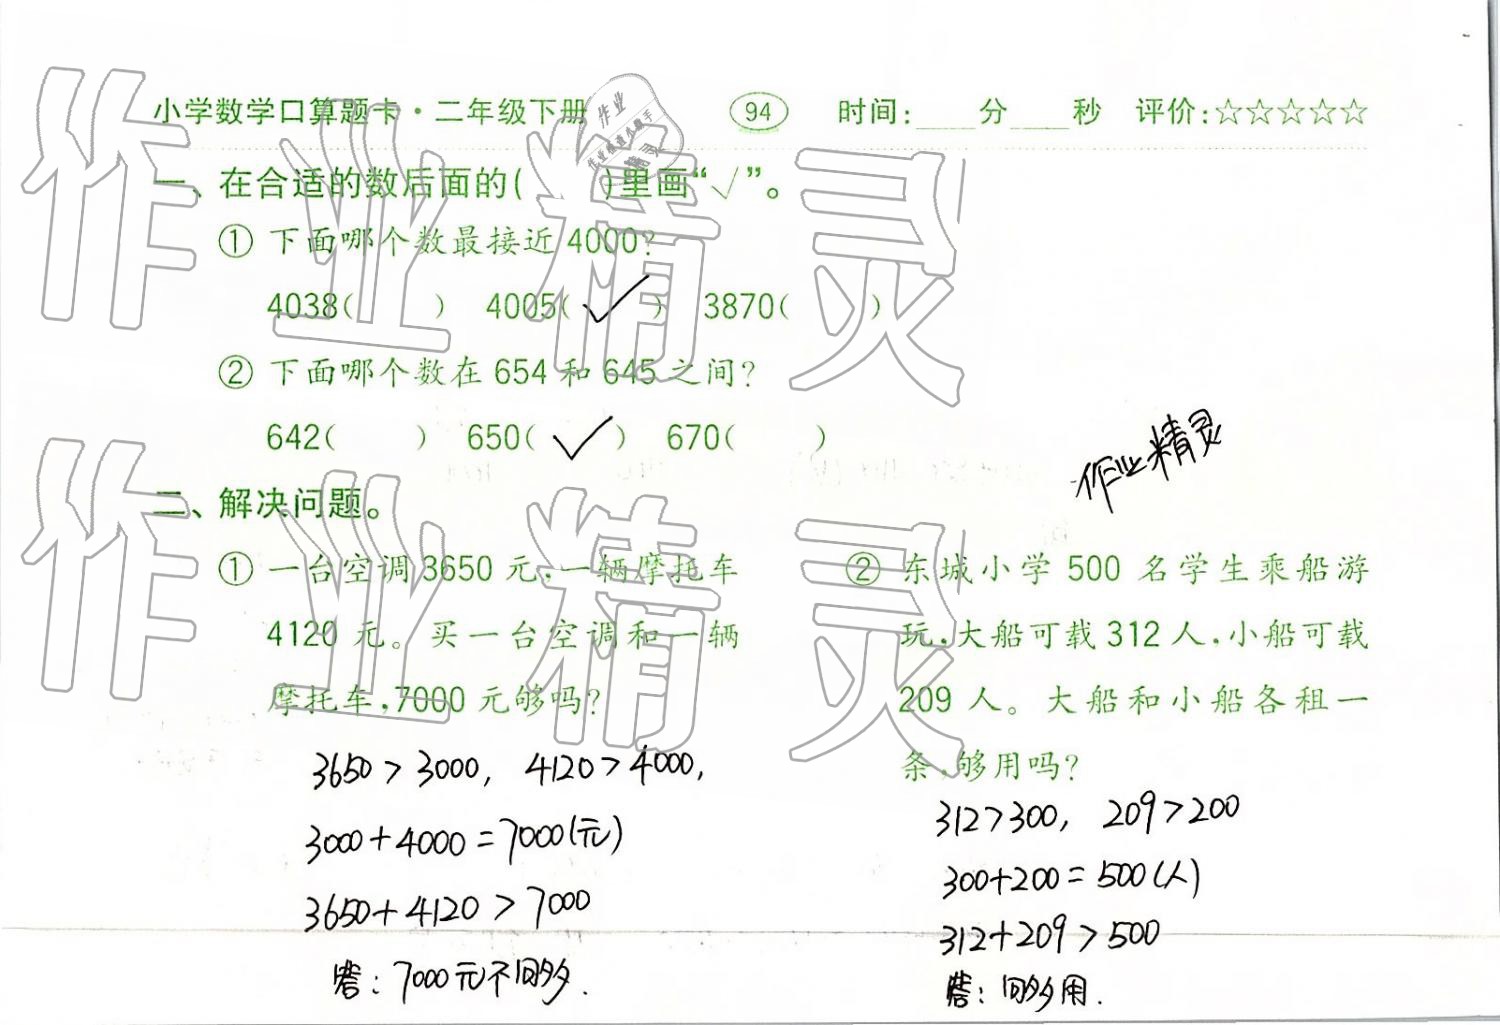 小学数学口算题卡·二年级下册 94 时间:____分____秒 评价:☆☆☆☆☆
一、在合适的数后面的( )里画“√”。
① 下面哪个数最接近4000?
4038( ) 4005( √ ) 3870( )
② 下面哪个数在654和645之间?
642( ) 650( √ ) 670( )
作业精灵
二、解决问题。
① 一台空调3650元,一辆摩托车
4120元。买一台空调和一辆
摩托车,7000元够吗?
3650>3000, 4120>4000,
3000+4000=7000(元)
3650+4120>7000
答:7000元不够.
② 东城小学500名学生乘船游
玩,大船可载312人,小船可载
209人。大船和小船各租一
条,够用吗?
312>300, 209>200
300+200=500(人)
312+209>500
答:够用.
作业精灵
作业精灵